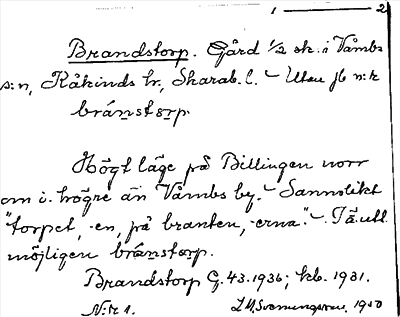 1 — 2
Brandstorp. Gård 1/2 sk. i Våmbs
s:n, Kåkinds hr, Skarab. l. – Uttau
bránstorp.
Högt läge på Billingen norr
om i. högre än Våmbs by. – Sannolikt
"torpet, -en, på branten, -erna". –
möjligen bránstorp.
Brandstorp G. 43. 1936; kb. 1931.
N:r 1. 1910